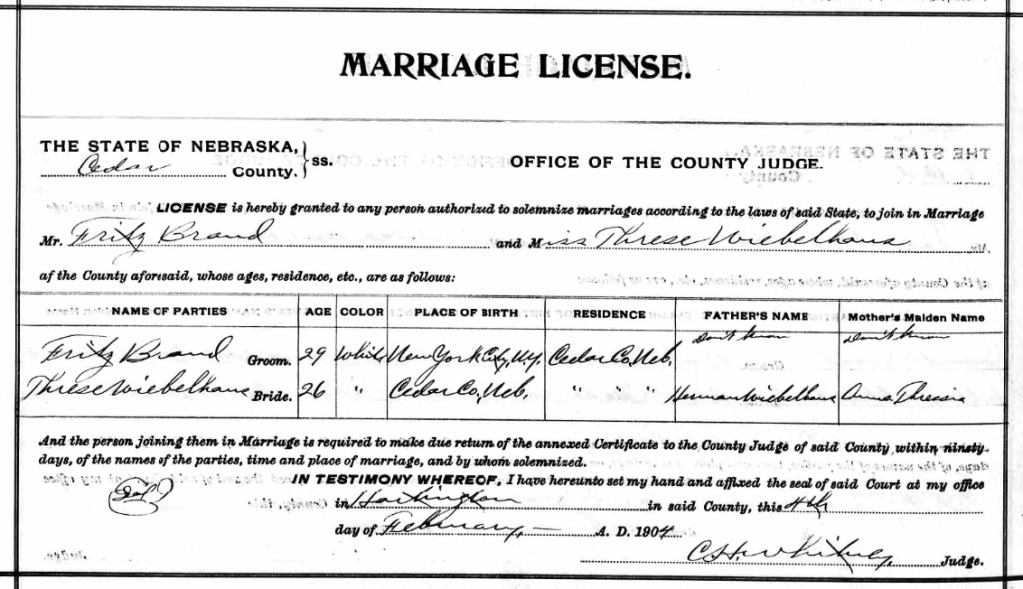 MARRIAGE LICENSE.
THE STATE OF NEBRASKA,
Cedar County. } ss. OFFICE OF THE COUNTY JUDGE.
LICENSE is hereby granted to any person authorized to solemnize marriages according to the laws of said State, to join in Marriage
Mr. Fritz Brand and Miss Threse Wiebelhaus
af the County aforesaid, whose ages, residence, etc., are as follows:
NAME OF PARTIES AGE COLOR PLACE OF BIRTH RESIDENCE FATHER'S NAME Mother's Maiden Name
Fritz Brand Groom. 29 White New York City, N.Y. Cedar Co, Neb. Don't know Don't know
Threse Wiebelhaus Bride. 26 " Cedar Co, Neb. " " " Herman Wiebelhaus Anna Thressia
And the person joining them in Marriage is required to make due return of the annexed Certificate to the County Judge of said County within ninety
days, of the names of the parties, time and place of marriage, and by whom solemnized.
IN TESTIMONY WHEREOF, I have hereunto set my hand and affixed the seal of said Court at my office
in Hartington in said County, this 4th
day of February, A. D. 1904
C. H. Whitney, Judge.